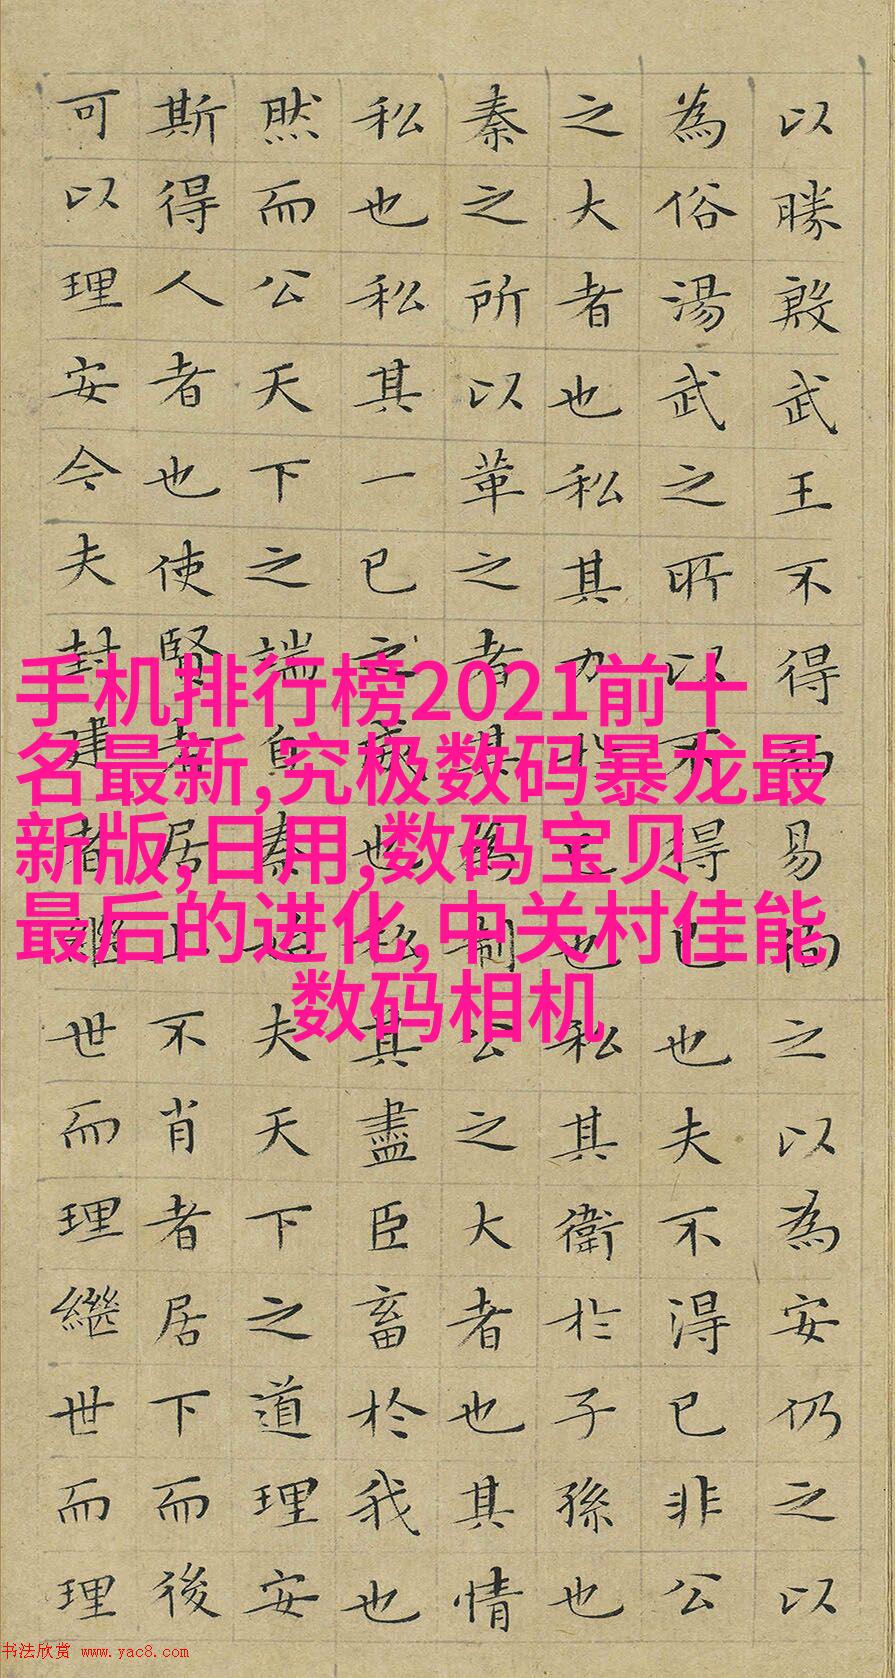 以勝殷武王不得而易徇之以為安仍之以
為俗湯武之所以不得已也夫不得已非公
之大者也私其力於己也私其衛於子孫也
秦之所以革之者其為制公之大者也其情
私也私其一己之威也私其盡臣畜於我也
然而公天下之端自秦始夫天下之道理安
斯得人者也使賢者居上不肖者居下而後
可以理安今夫封建者繼世而理繼世而理
手机排行榜2021前十
名最新,究极数码暴龙最
新版,日用,数码宝贝
最后的进化,中关村佳能
数码相机
书法欣赏 www.yac8.com